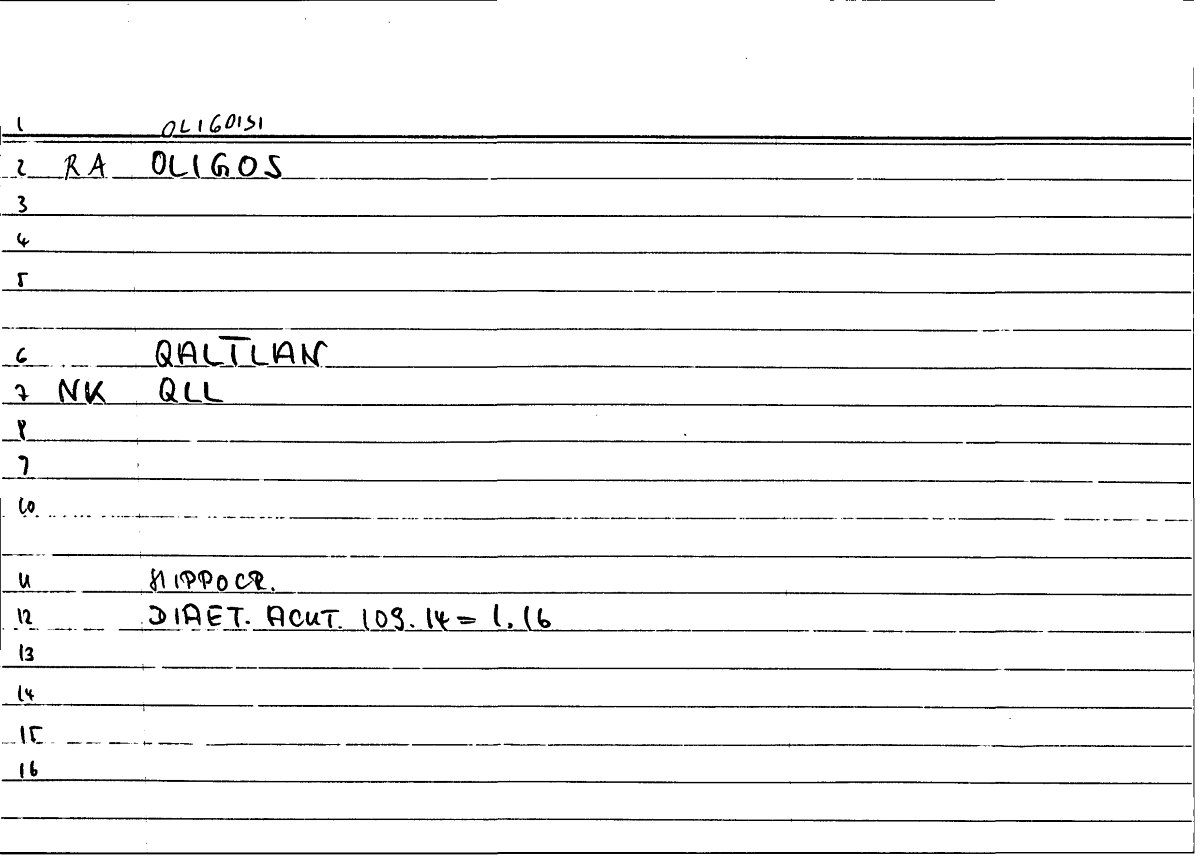 1 OLIGOISI
2 RA OLIGOS
3
4
5
6 QALĪLAN
7 NK QLL
8
9
10
11 HIPPOCR.
12 DIAET. ACUT. 109.14 = 1.16
13
14
15
16